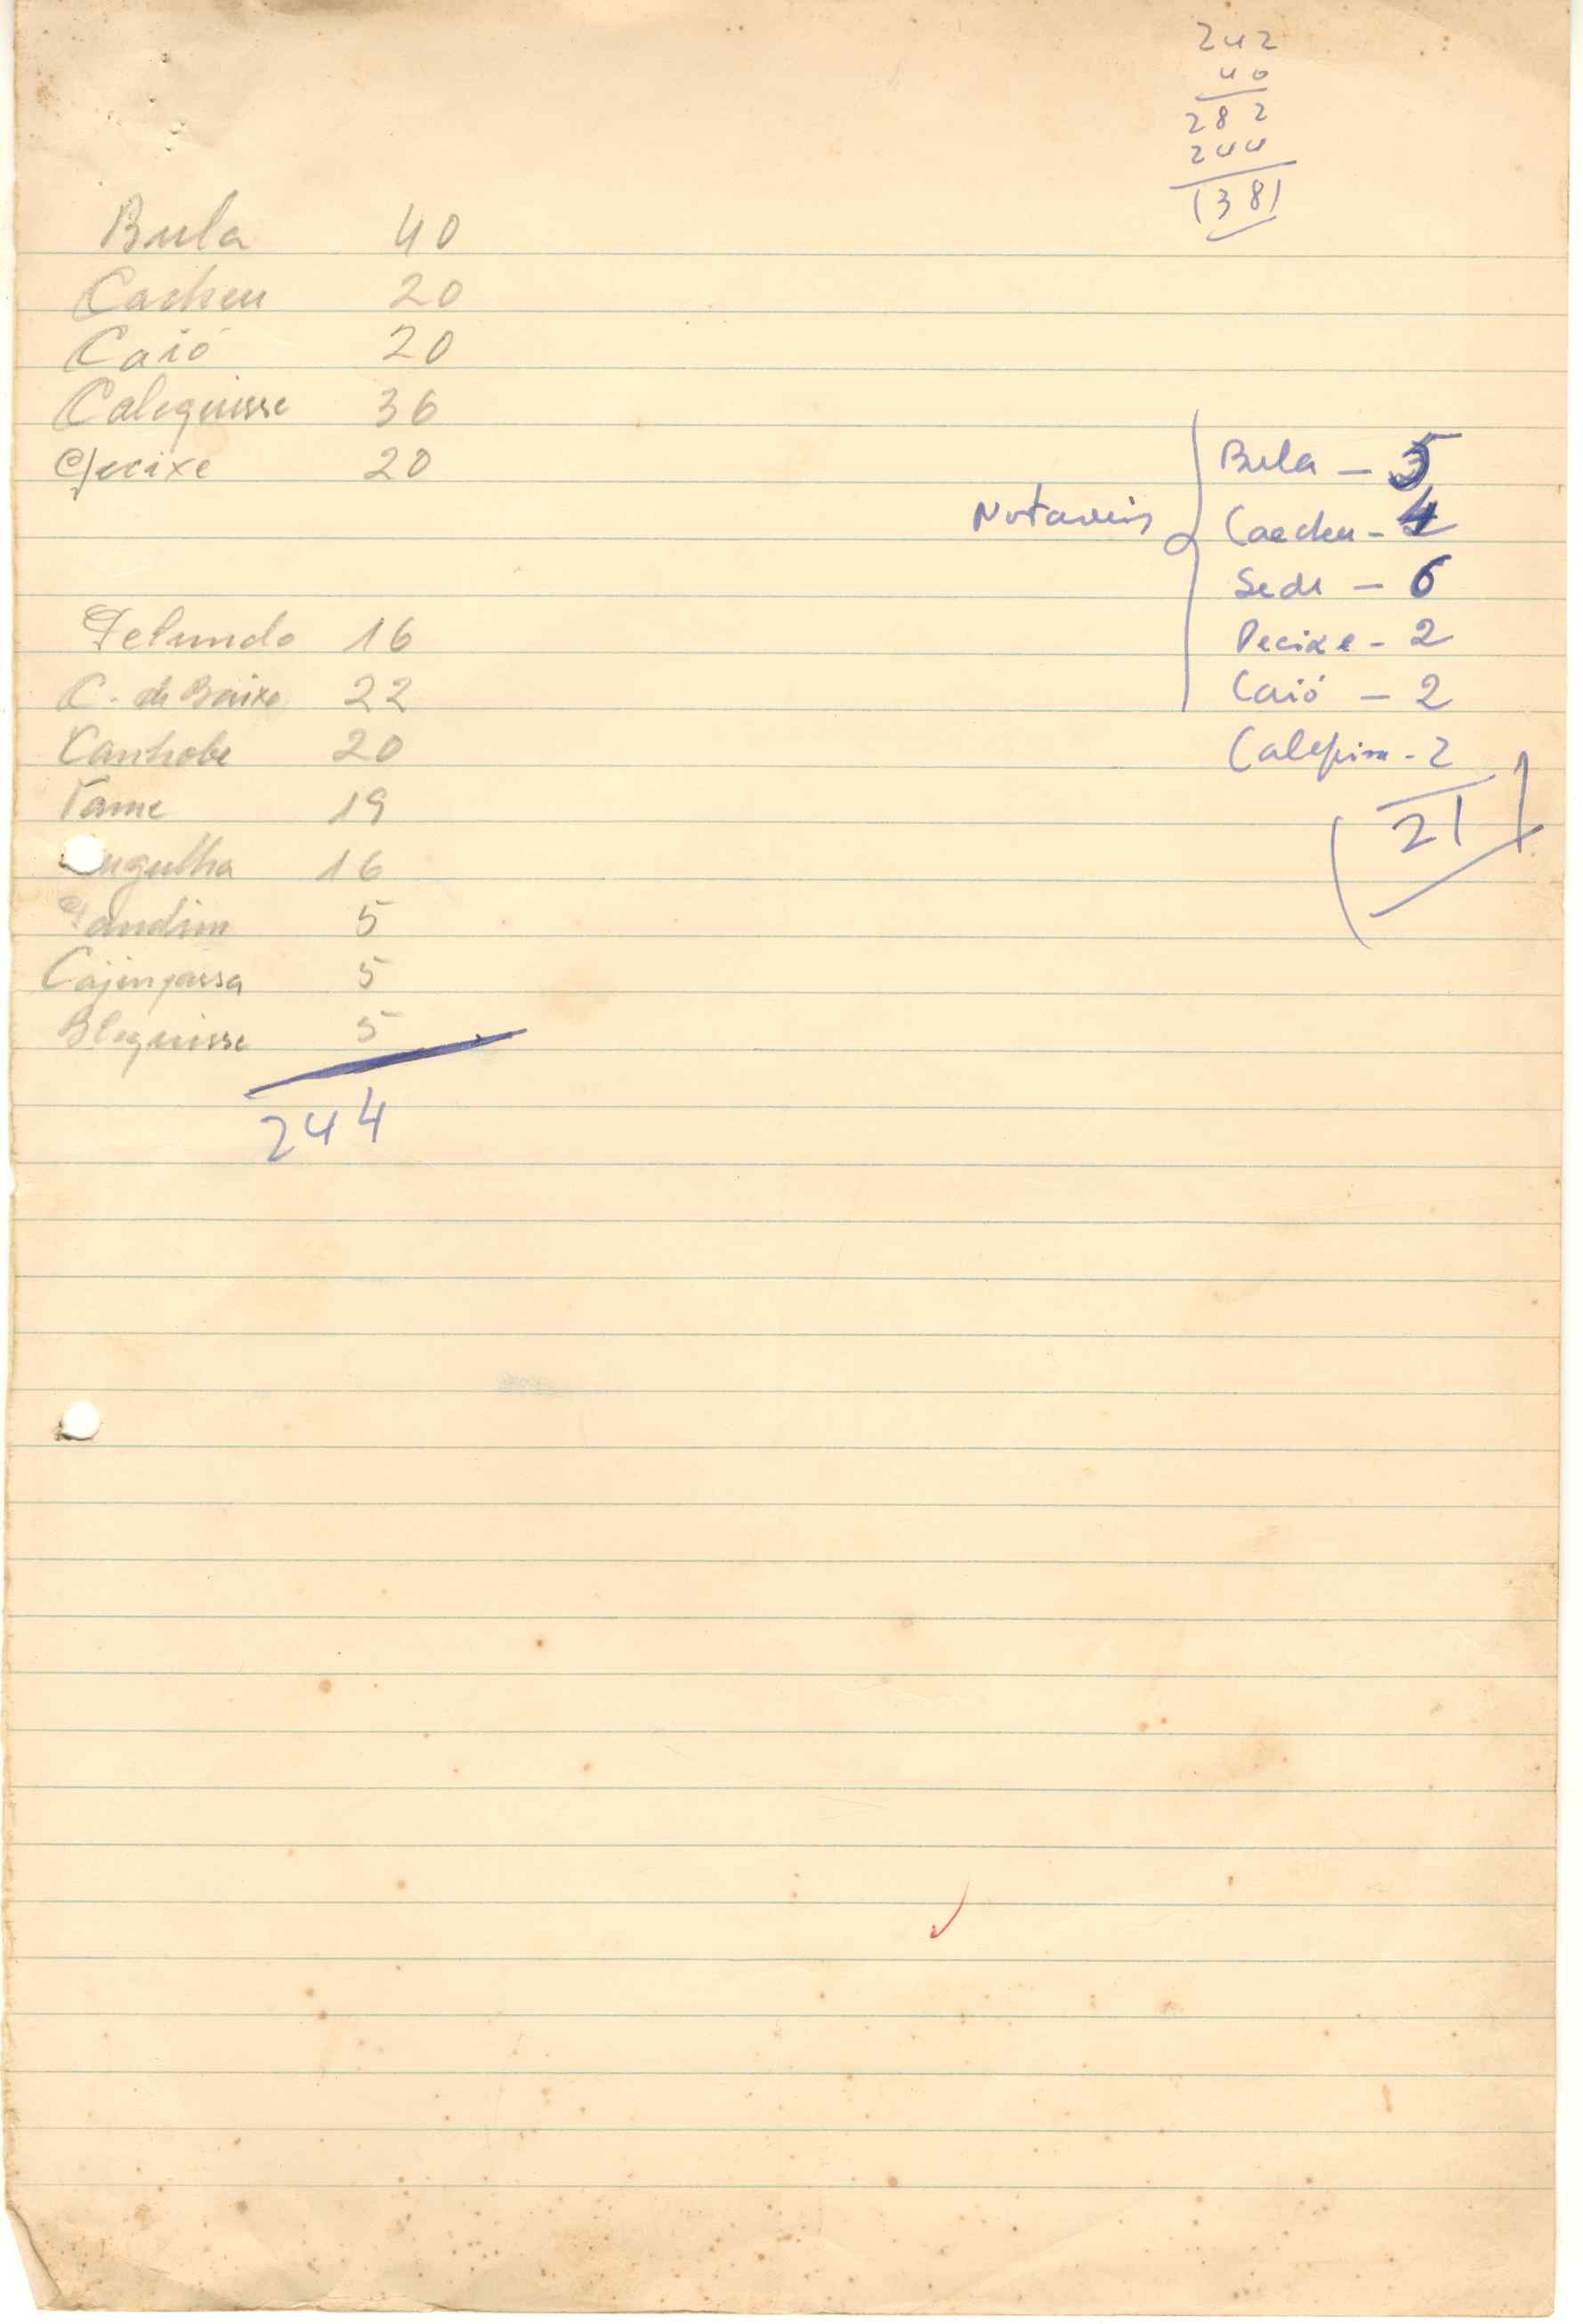 242
40
282
244
1381
Bula 40
Cacheu 20
Caió 20
Calequisse 36
Pecixe 20
Pelundo 16
C. de Baixo 22
Canhobe 20
Tame 19
ngulha 16
Pandim 5
Cajinjassa 5
Blequisse 5
244
Notaveis
Bula - 5
Cacheu - 4
Sede - 6
Pecixe - 2
Caió - 2
- 2
21